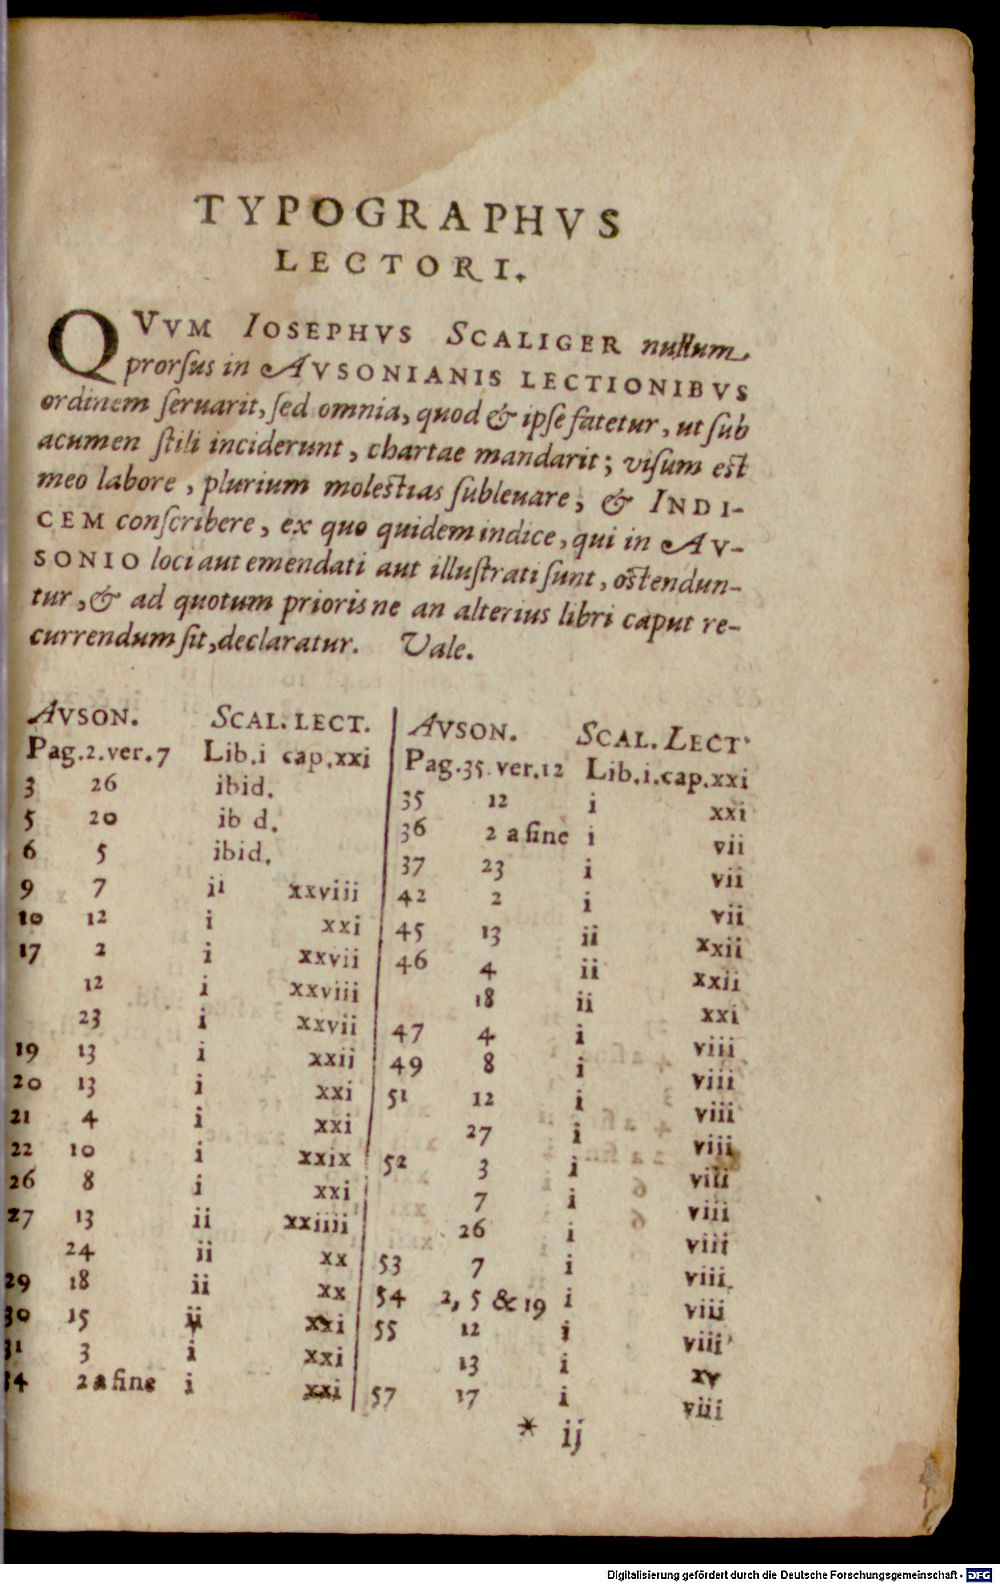 TYPOGRAPHVS
LECTORI.
QVVM IOSEPHVS SCALIGER nullum
prorſus in AVSONIANIS LECTIONIBVS
ordinem ſeruarit, ſed omnia, quod & ipſe fatetur, ut ſub
acumen ſtili inciderunt, chartae mandarit; viſum est
meo labore, plurium molestias ſubleuare, & INDI-
CEM conſcribere, ex quo quidem indice, qui in AV-
SONIO loci aut emendati aut illuſtrati ſunt, oſtendun-
tur, & ad quotum prioris ne an alterius libri caput re-
currendum ſit, declaratur. Vale.
AVSON. SCAL. LECT.
Pag.2.ver.7 Lib.i cap.xxi
3 26 ibid.
5 20 ib d.
6 5 ibid.
9 7 ii xxviii
10 12 i xxi
17 2 i xxvii
12 i xxviii
23 i xxvii
19 13 i xxii
20 13 i xxi
21 4 i xxi
22 10 i xxix
26 8 i xxi
27 13 ii xxiiii
24 ii xx
29 18 ii xx
30 15 ii xxi
31 3 i xxi
34 2 a fine i xxi
AVSON. SCAL. LECT.
Pag.35.ver.12 Lib.i.cap.xxi
35 12 i xxi
36 2 a fine i vii
37 23 i vii
42 2 i vii
45 13 ii xxii
46 4 ii xxii
18 ii xxi
47 4 i viii
49 8 i viii
51 12 i viii
27 i viii
52 3 i viii
7 i viii
26 i viii
53 7 i viii
54 2, 5 & 19 i viii
55 12 i viii
13 i xv
57 17 i viii
* ij
Digitalisierung gefördert durch die Deutsche Forschungsgemeinschaft - DFG